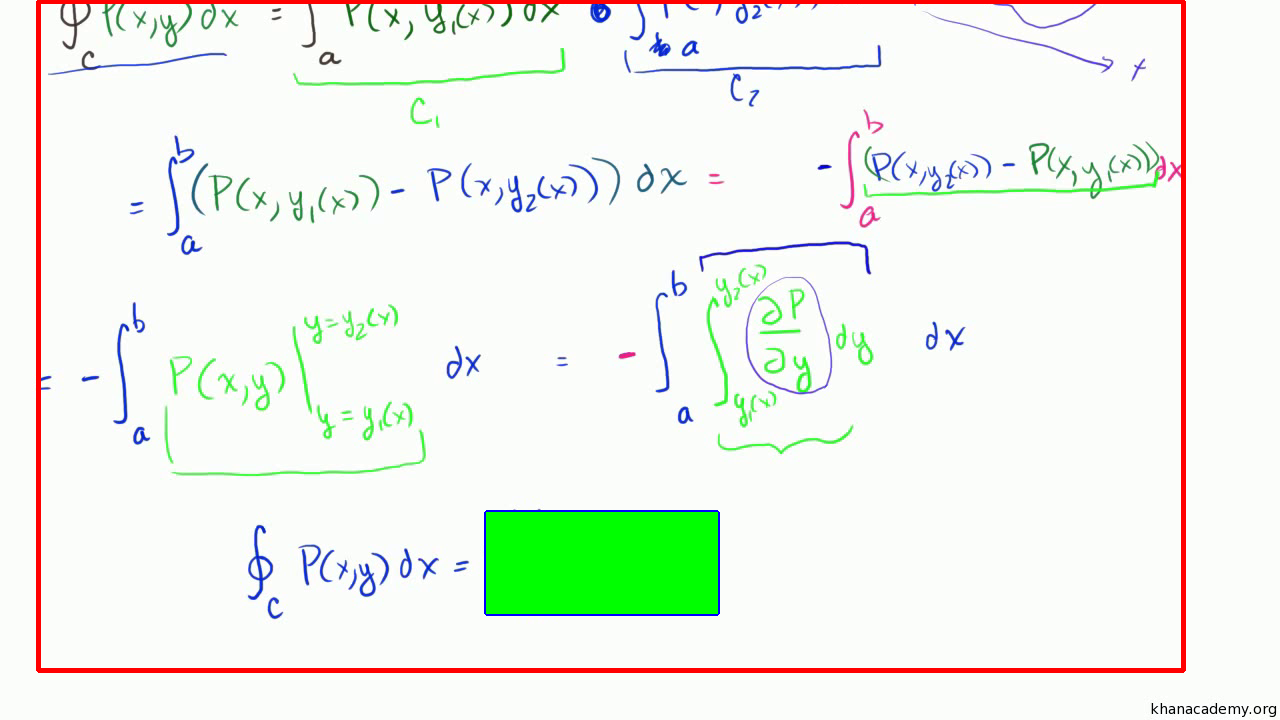 ∮_C P(x,y) dx = ∫_a P(x, y₁(x)) dx ∫_a
C₁ C₂ x
= ∫_a^b (P(x, y₁(x)) - P(x, y₂(x))) dx = - ∫_a^b (P(x, y₂(x)) - P(x, y₁(x))) dx
= - ∫_a^b P(x,y) |_{y = y₁(x)}^{y = y₂(x)} dx = - ∫_a^b ∫_{y₁(x)}^{y₂(x)} ∂P/∂y dy dx
∮_C P(x,y) dx =
khanacademy.org